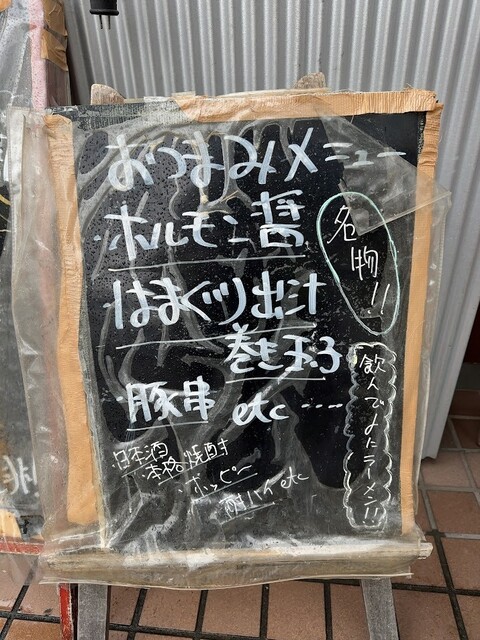 おつまみメニュー
ホルモン醤
名物!!
はまぐり出汁
巻き玉子
豚串 etc ....
飲んでよしラーメン!!
日本酒
本格焼酎
ホッピー
酎ハイ etc